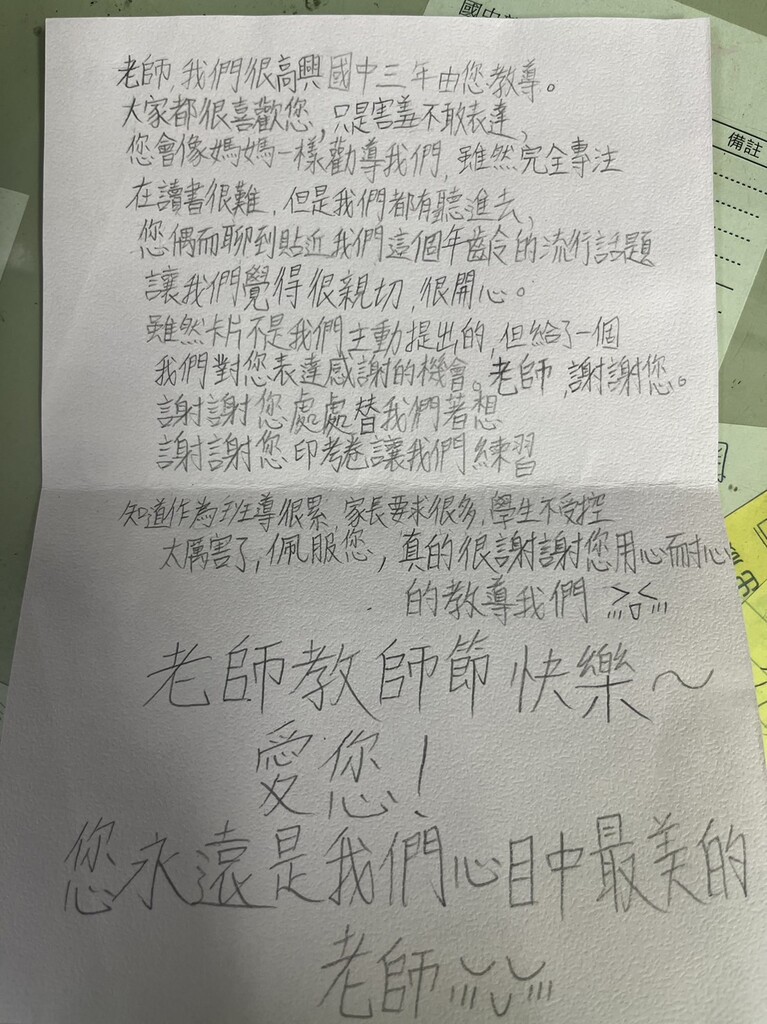 國中
備註
老師,我們很高興國中三年由您教導。
大家都很喜歡您,只是害羞不敢表達,
您會像媽媽一樣勸導我們,雖然完全專注
在讀書很難,但是我們都有聽進去,
您偶而聊到貼近我們這個年齡的流行話題
讓我們覺得很親切,很開心。
雖然卡片不是我們主動提出的,但給了一個
我們對您表達感謝的機會。老師,謝謝您。
謝謝您處處替我們著想
謝謝您印考卷讓我們練習
知道作為班導很累,家長要求很多,學生不受控
太厲害了,佩服您,真的很謝謝您用心耐心
的教導我們
老師教師節快樂~
愛您!
您永遠是我們心目中最美的
老師